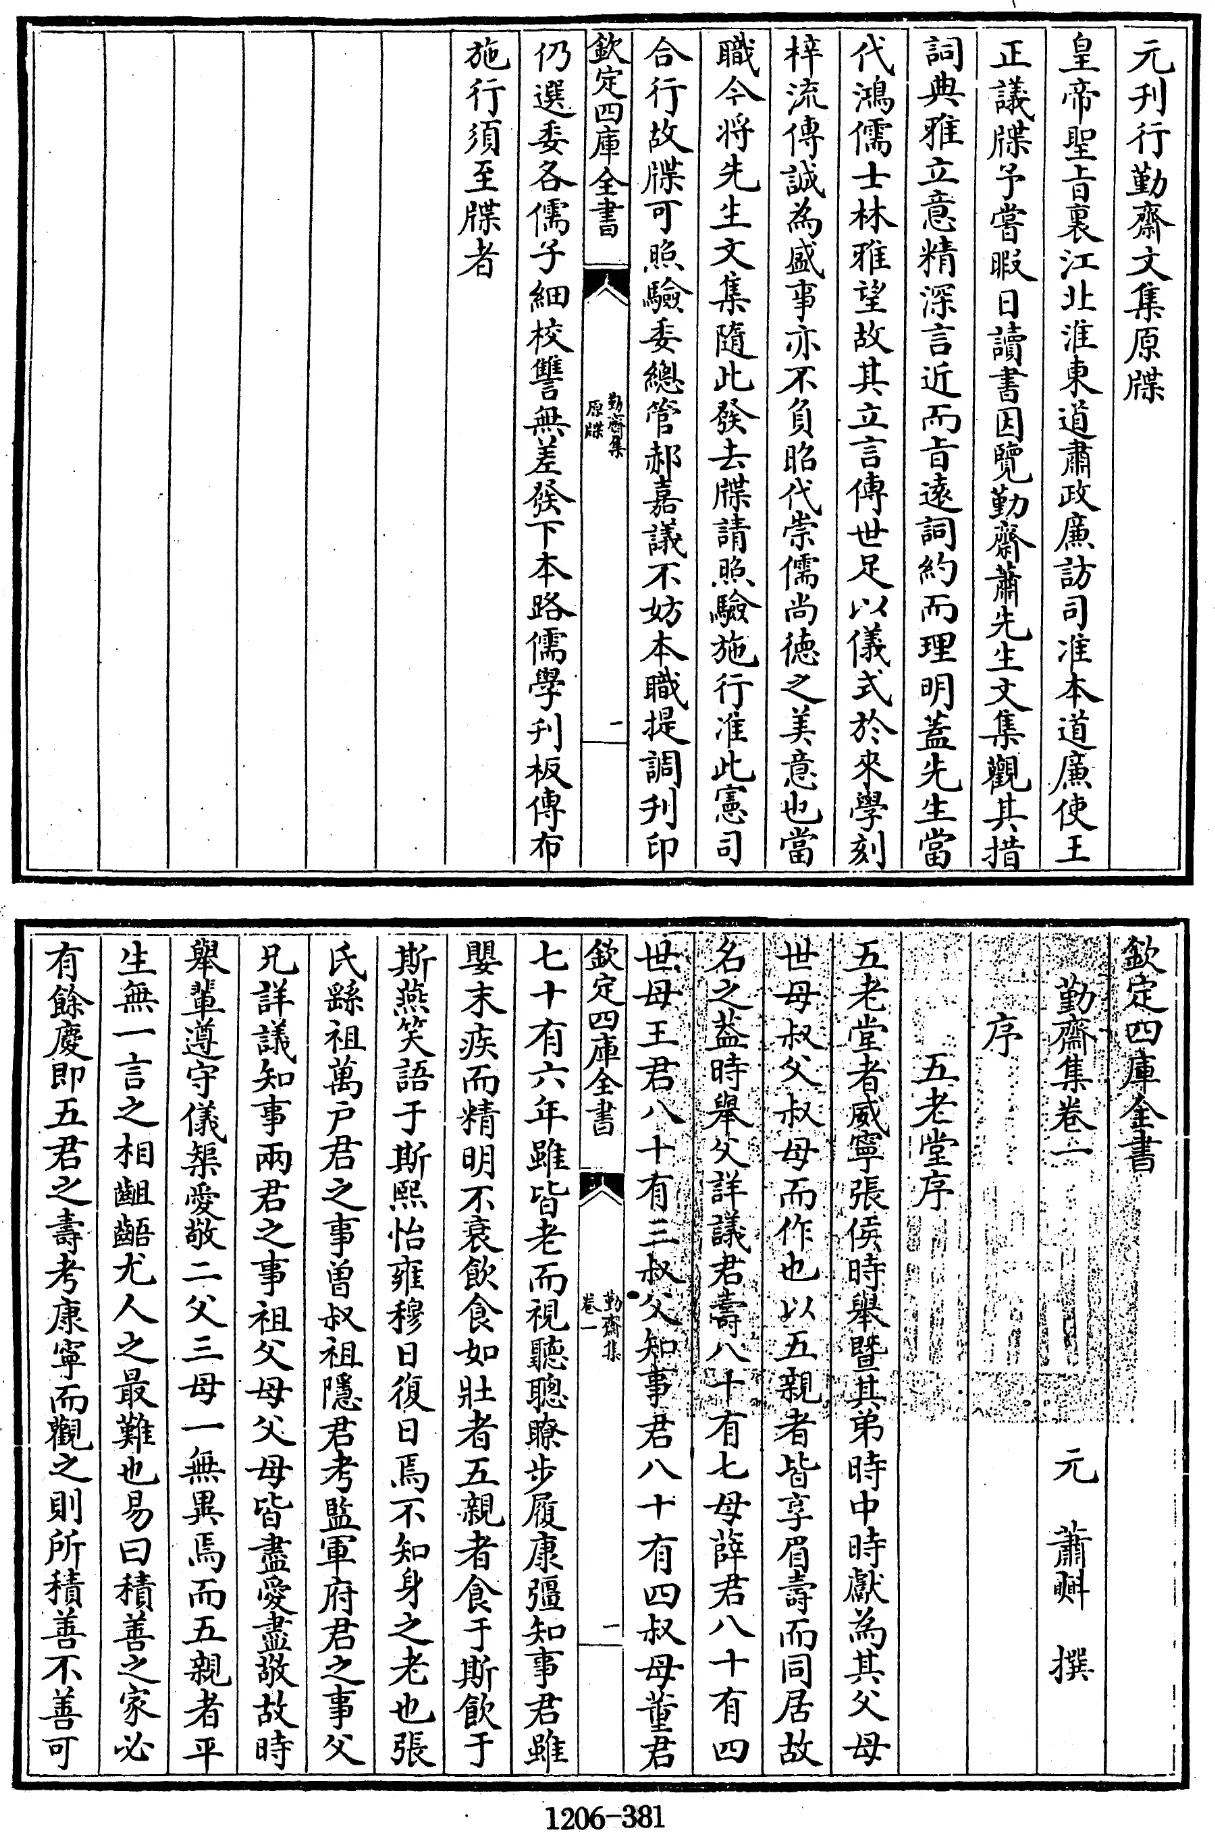 元刊行勤齋文集原牒
皇帝聖旨裏江北淮東道肅政廉訪司准本道廉使王
正議牒予嘗暇日讀書因覽勤齋蕭先生文集觀其措
詞典雅立意精深言近而旨遠詞約而理明蓋先生當
代鴻儒士林雅望故其立言傳世足以儀式於來學刻
梓流傳誠為盛事亦不負昭代崇儒尚德之美意也當
職今將先生文集隨此發去牒請照驗施行准此憲司
合行故牒可照驗委總管郝嘉議不妨本職提調刊印
欽定四庫全書
勤齋集
原牒
一
仍選委各儒子細校讐無差發下本路儒學刊板傳布
施行須至牒者
欽定四庫全書
勤齋集卷一
元 蕭㪺 撰
序
五老堂序
五老堂者咸寧張侯時舉暨其弟時中時獻為其父母
世母叔父叔母而作也以五親者皆享眉壽而同居故
名之葢時舉父詳議君壽八十有七母薛君八十有四
世母王君八十有三叔父知事君八十有四叔母董君
欽定四庫全書
勤齋集
卷一
一
七十有六年雖皆老而視聽聰瞭步履康彊知事君雖
嬰末疾而精明不衰飲食如壯者五親者食于斯飲于
斯燕笑語于斯熙怡雍穆日復日焉不知身之老也張
氏繇祖萬户君之事曽叔祖隱君考監軍府君之事父
兄詳議知事兩君之事祖父母父母皆盡愛盡敬故時
舉輩遵守儀榘愛敬二父三母一無異焉而五親者平
生無一言之相齟齬尤人之最難也易曰積善之家必
有餘慶即五君之壽考康寧而觀之則所積善不善可
1206-381